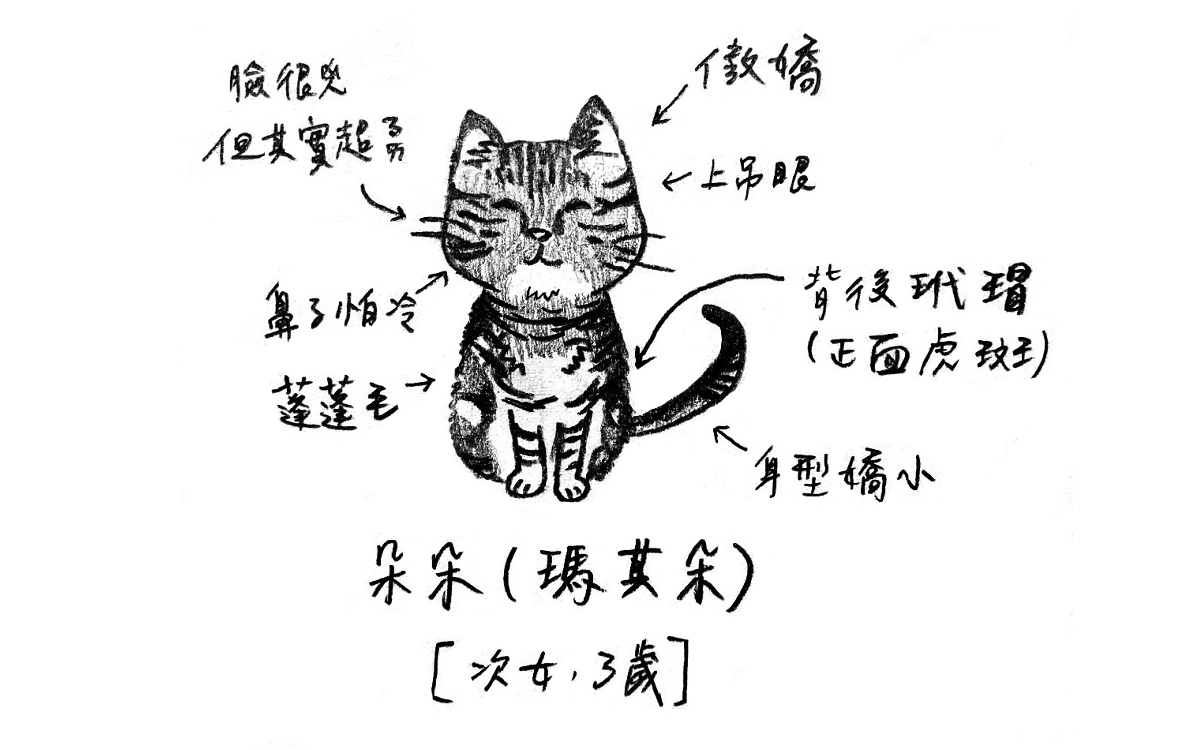 臉很兇
但其實超
傲嬌
上吊眼
鼻子怕冷
背後玳瑁
(正面虎斑)
蓬蓬毛
身型嬌小
朵朵(瑪其朵)
[次女,3歲]